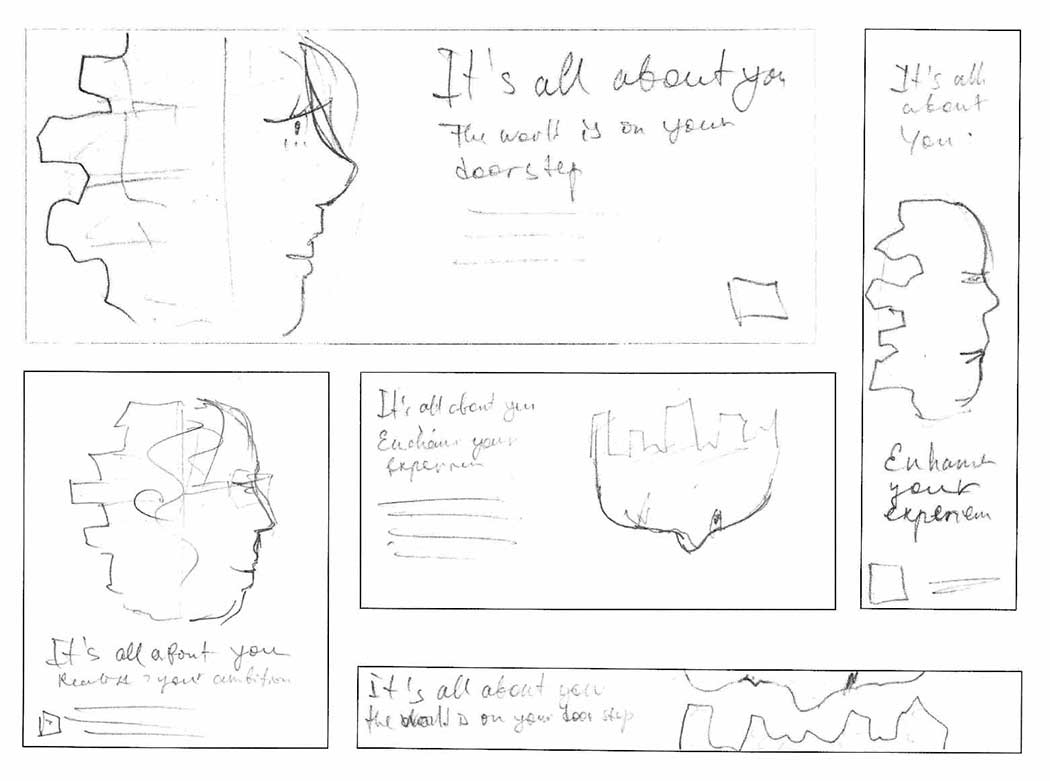 It's all about you
The world is on your
doorstep
It's all
about
you.
Enhance
your
experien
It's all about you
Enchane your
experien
It's all about you
Realise your ambition
It's all about you
the world is on your door step